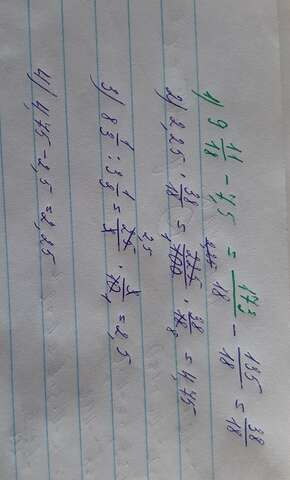 1) 9 11/18 - 7,5 = 173/18 - 135/18 = 38/18
2) 2,25 · 38/18 = 225/100 · 38/18 = 4,75
3) 8 1/3 : 3 1/3 = 25/3 · 3/10 = 2,5
4) 4,75 - 2,5 = 2,25